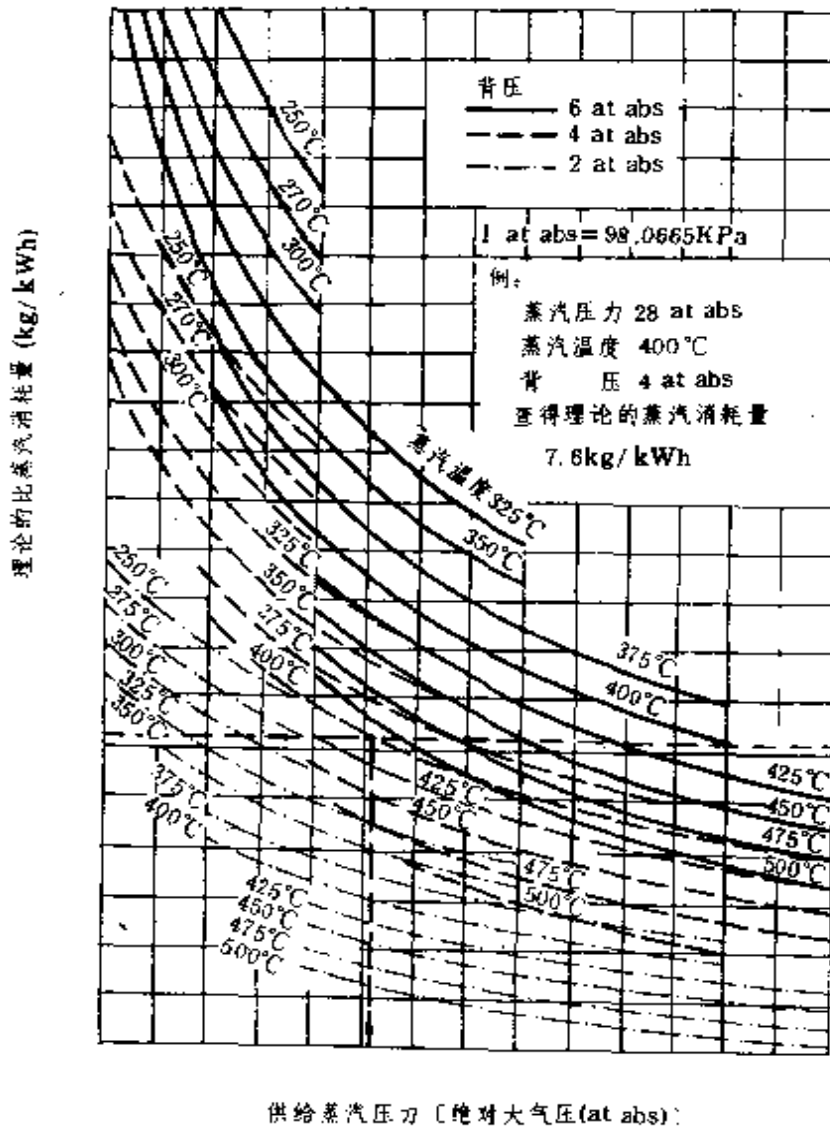 背压
6 at abs
4 at abs
2 at abs
1 at abs=98.0665KPa
例:
蒸汽压力 28 at abs
蒸汽温度 400℃
背 压 4 at abs
查得理论的蒸汽消耗量
7.6kg/kWh
理论的比蒸汽消耗量 (kg/kWh)
250℃
270℃
300℃
250℃
270℃
300℃
蒸汽温度325℃
350℃
325℃
350℃
275℃
400℃
375℃
400℃
425℃
450℃
475℃
500℃
250℃
275℃
300℃
325℃
350℃
375℃
400℃
425℃
450℃
475℃
500℃
425℃
450℃
475℃
500℃
供给蒸汽压力〔绝对大气压(at abs)〕